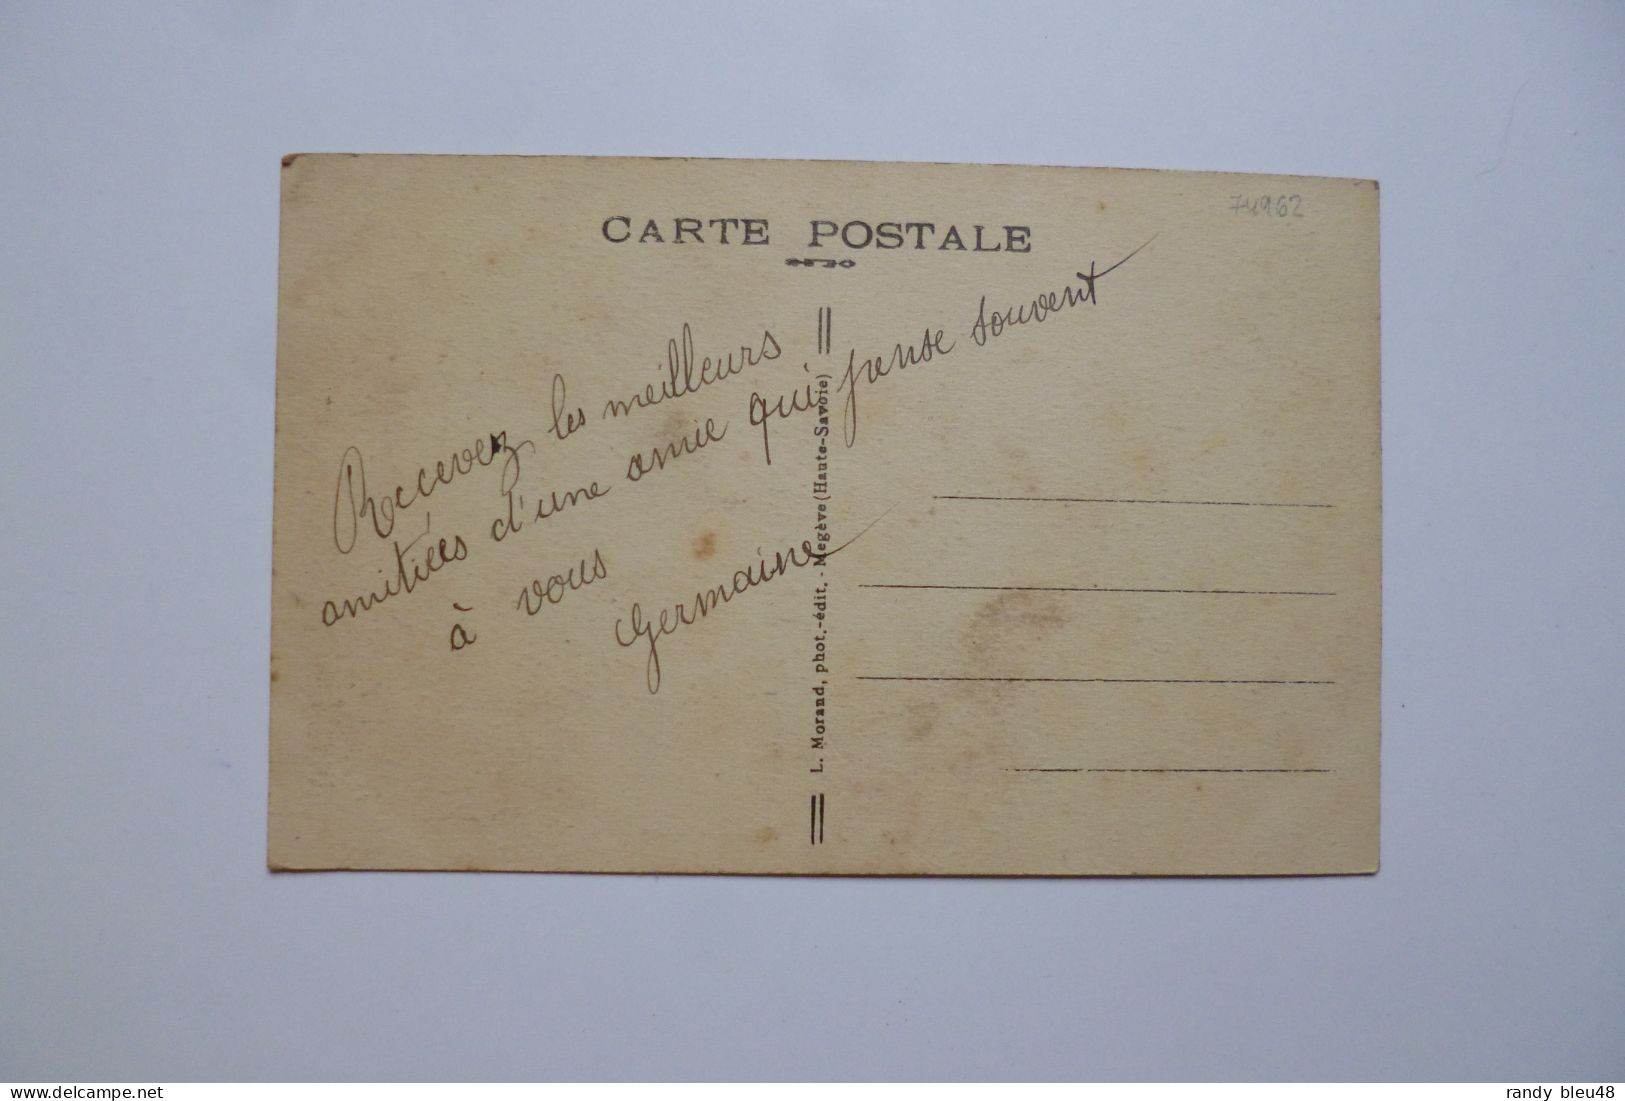 74962
CARTE POSTALE
Recevez les meilleurs
amitiées d'une amie qui pense souvent
à vous
Germaine
L. Morand, phot.-édit. - Megève (Haute-Savoie)
delcampe.net
randy bleu48